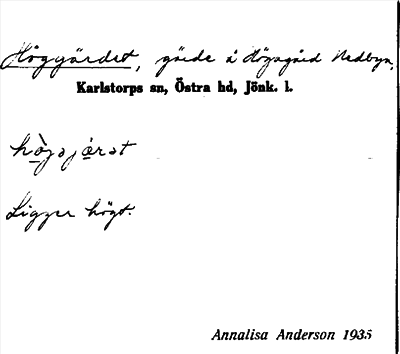 Höggärdet, gärde å Högagärd Nedbyn,
Karlstorps sn, Östra hd, Jönk. l.
Ligger högt.
Annalisa Anderson 1935